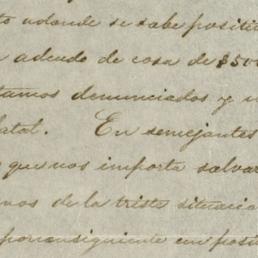 to adonde se sabe positi
adeudo de cosa de $500
tamos denunciados y
fatal. En semejantes
que nos importa salvar
nos de la triste situacio
porconsiguiente en posi